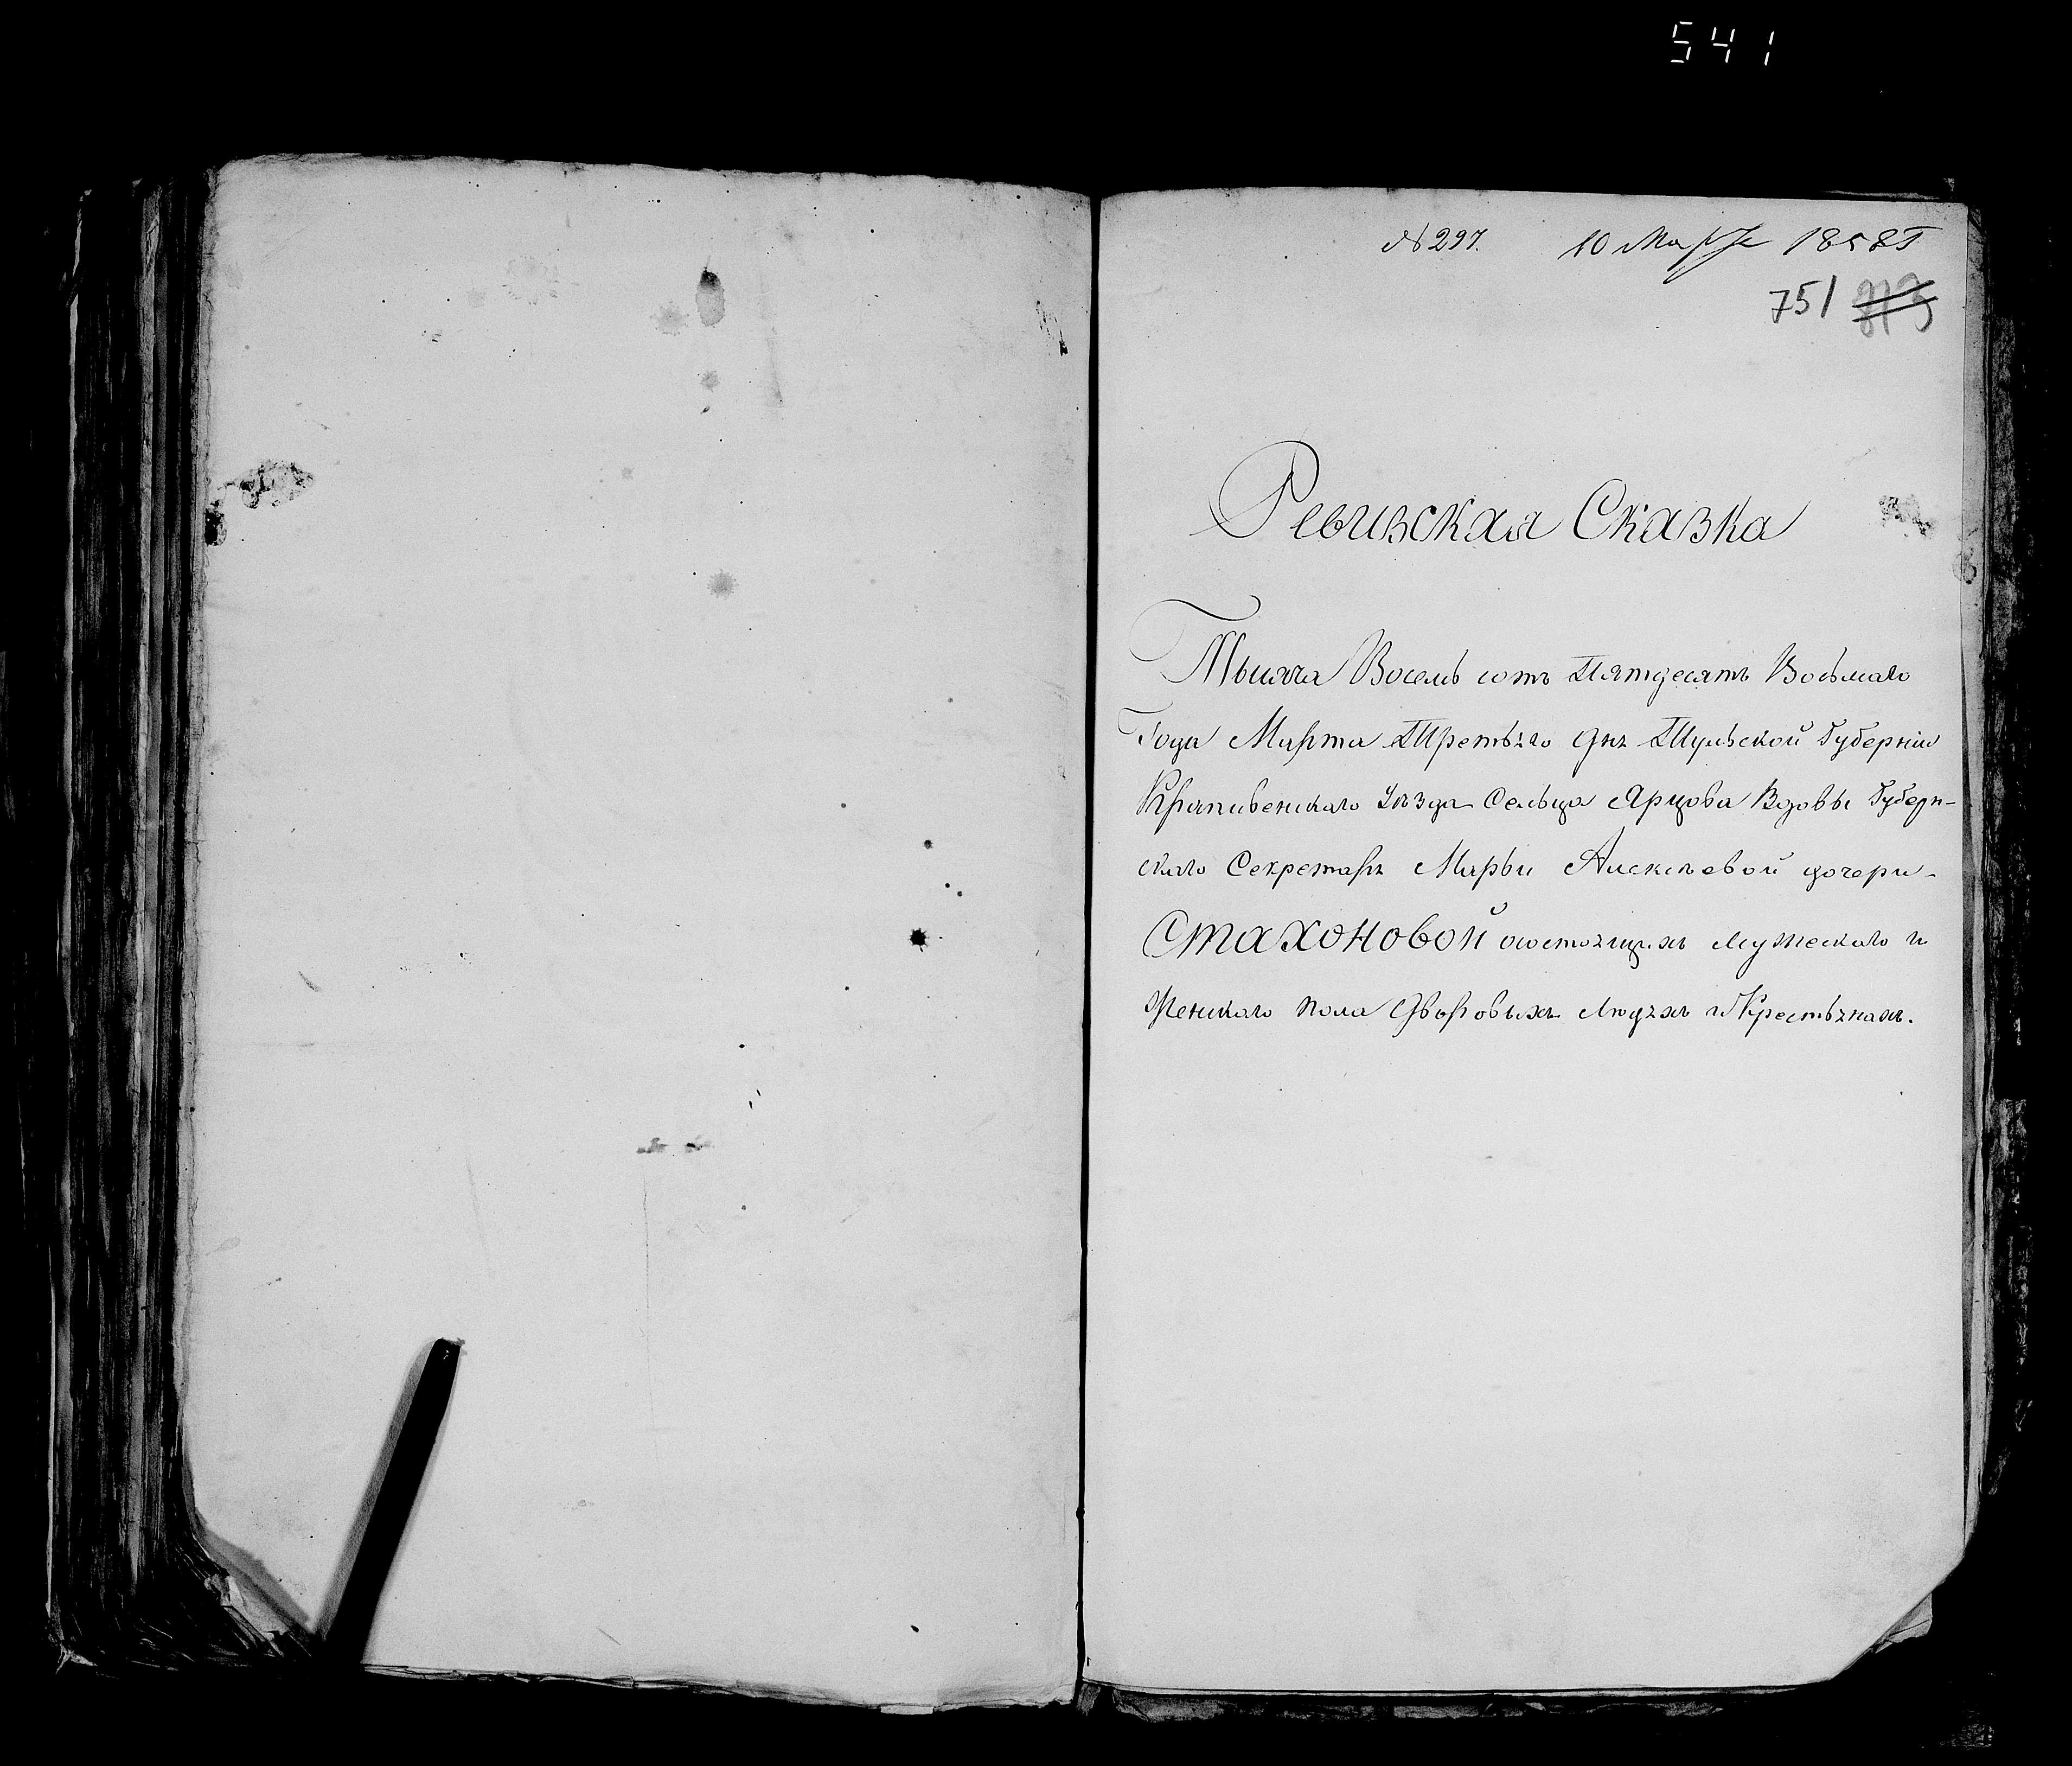 541
№ 297. 10 Марта 1858 Г
751
Ревизская Сказка
Тысяча Восемь сотъ Пятдесятъ Восьмаго
Года Марта Третьяго дня Тульской Губерніи
Крапивенскаго Уѣзда Сельца Ярцова Вдовы Губерн-
скаго Секретаря Марьи Алексѣевой дочери
Стахоновой состоящихъ мужескаго и
Женскаго пола Дворовыхъ Людяхъ и Крестьянахъ.